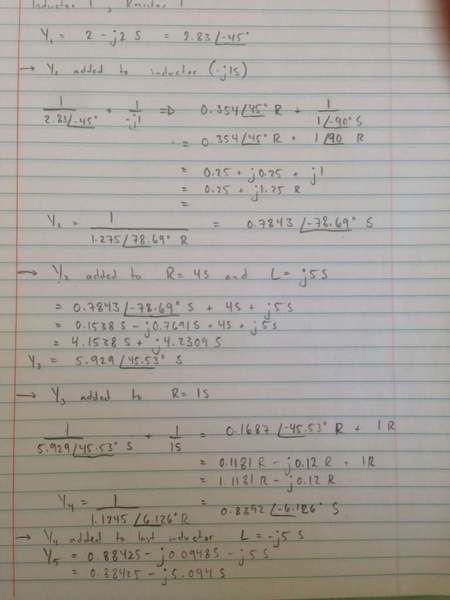 Inductor 1, Resistor 1
Y₁ = 2 - j2 S = 2.83∠-45°
→ Y₁ added to inductor (-j1S)
1/2.83∠-45° + 1/-j1 ⇒ 0.354∠45° R + 1/1∠-90° S
= 0.354∠45° R + 1∠90 R
= 0.25 + j0.25 + j1
= 0.25 + j1.25 R
=
Y₂ = 1/1.275∠78.69° R = 0.7843∠-78.69° S
→ Y₂ added to R = 4S and L = j5S
= 0.7843∠-78.69° S + 4S + j5S
= 0.1538 S - j0.7691 S + 4S + j5S
= 4.1538 S + j4.2309 S
Y₃ = 5.929∠45.53° S
→ Y₃ added to R = 1S
1/5.929∠45.53° S + 1/1S = 0.1687∠-45.53° R + 1R
= 0.1181 R - j0.12 R + 1R
= 1.1181 R - j0.12 R
Y₄ = 1/1.1245∠6.126° R = 0.8892∠-6.126° S
→ Y₄ added to last inductor L = -j5 S
Y₅ = 0.8842S - j0.0948S - j5 S
= 0.8842S - j5.094 S